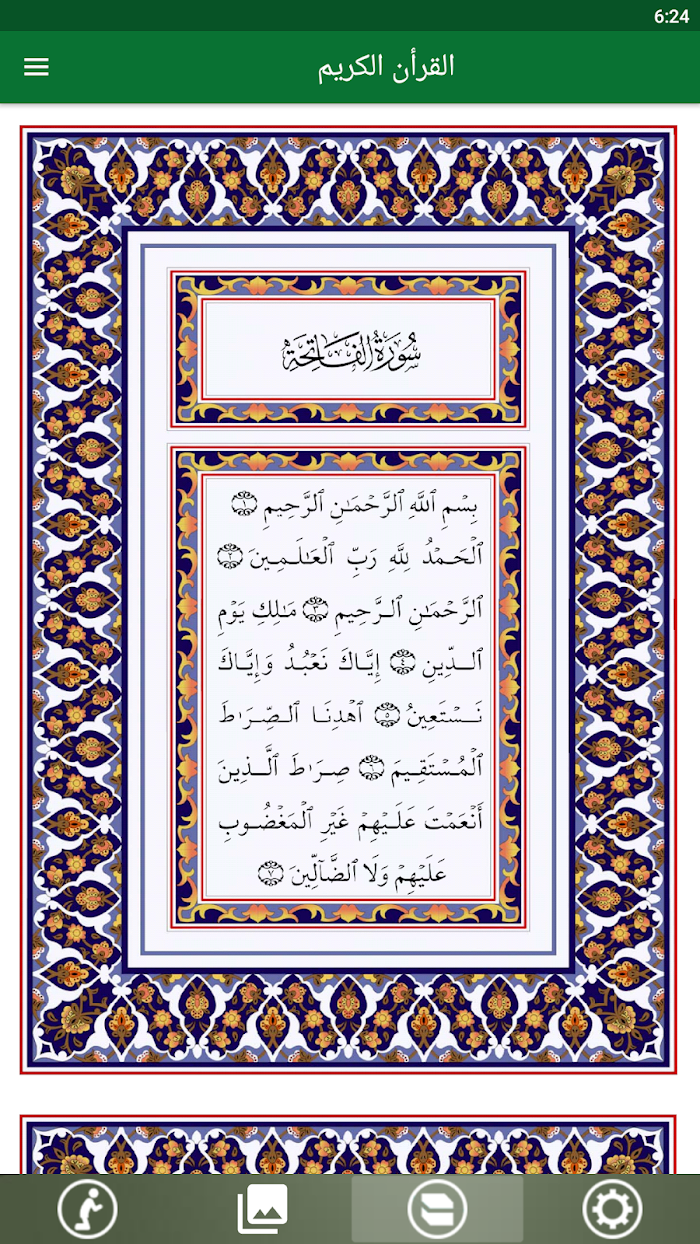 6:24
القرأن الكريم
سُورَةُ الْفَاتِحَةِ
بِسْمِ ٱللَّهِ ٱلرَّحْمَـٰنِ ٱلرَّحِيمِ ١
ٱلْحَمْدُ لِلَّهِ رَبِّ ٱلْعَـٰلَمِينَ ٢
ٱلرَّحْمَـٰنِ ٱلرَّحِيمِ ٣ مَـٰلِكِ يَوْمِ
ٱلدِّينِ ٤ إِيَّاكَ نَعْبُدُ وَإِيَّاكَ
نَسْتَعِينُ ٥ ٱهْدِنَا ٱلصِّرَٰطَ
ٱلْمُسْتَقِيمَ ٦ صِرَٰطَ ٱلَّذِينَ
أَنْعَمْتَ عَلَيْهِمْ غَيْرِ ٱلْمَغْضُوبِ
عَلَيْهِمْ وَلَا ٱلضَّآلِّينَ ٧